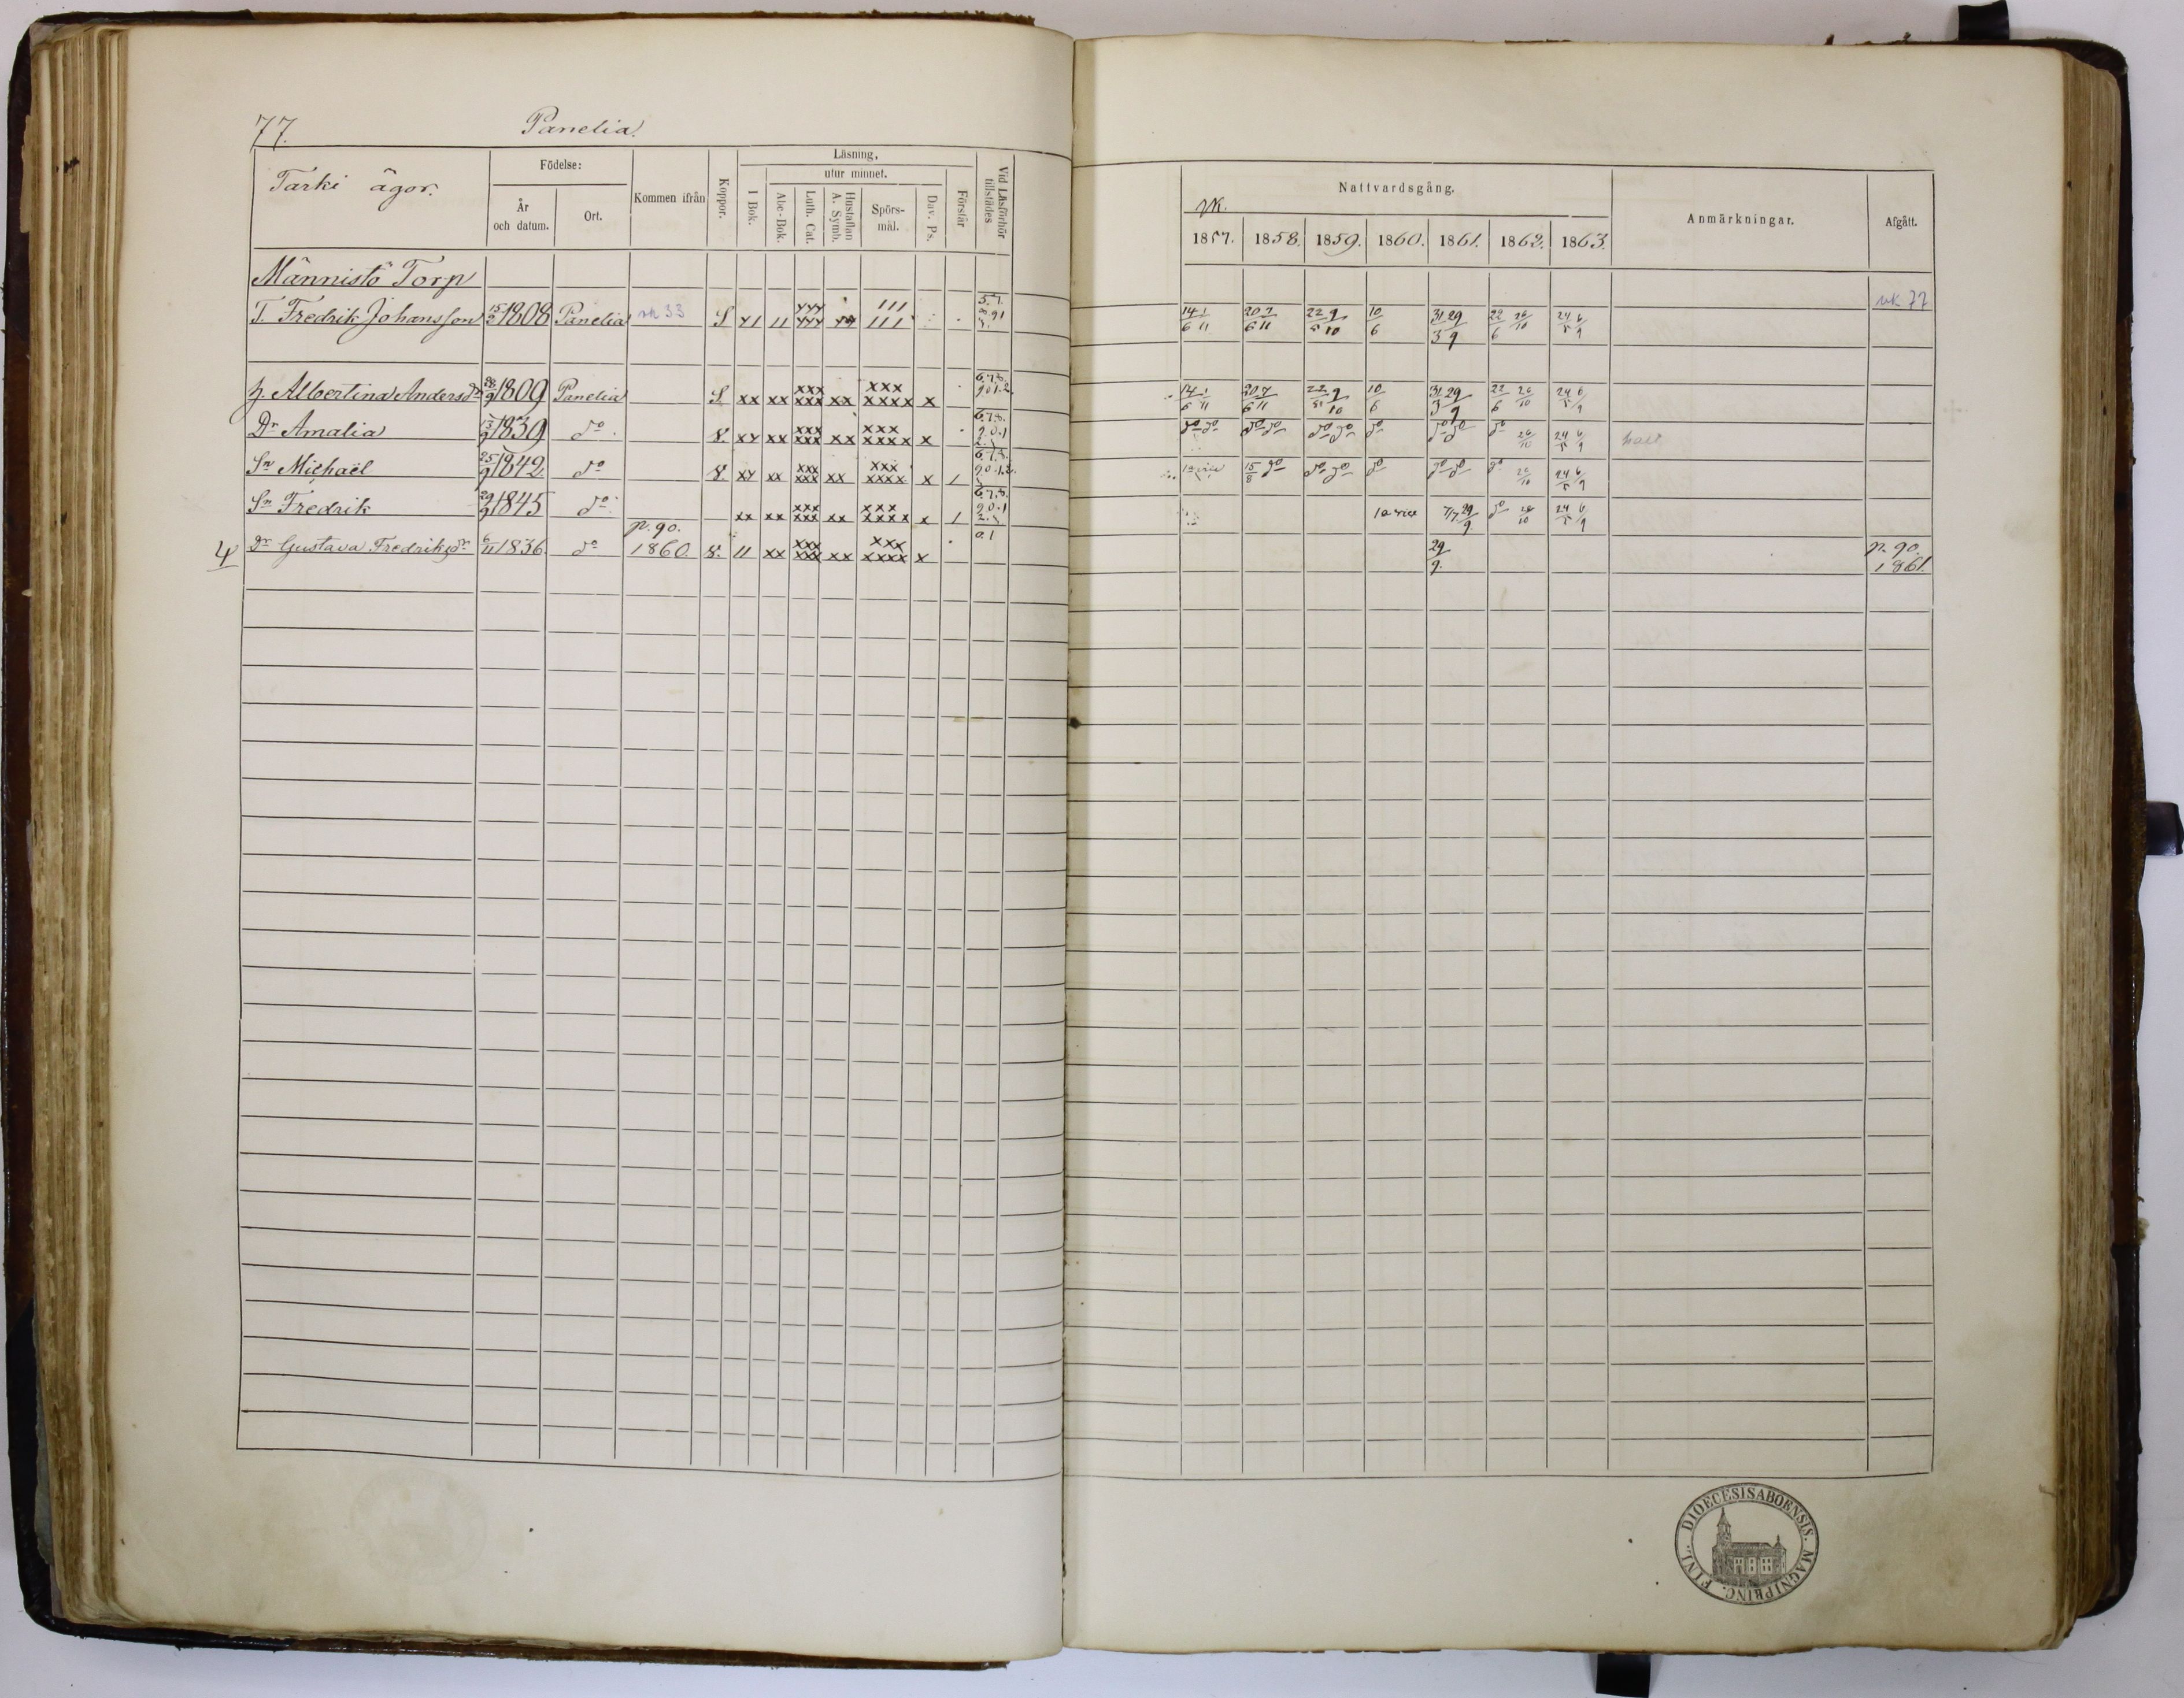 77. Panelia.
Tarki ägor.
Födelse:
År och datum.
Ort.
Kommen ifrån
Koppor.
Läsning,
utur minnet.
I Bok.
Abc-Bok.
Luth. Cat.
Hustaflan A. Symb.
Spörsmål.
Dav. Ps.
Förstår
Vid Läsförhör tillstädes
Nattvardsgång.
1857. 1858. 1859. 1860. 1861. 1862. 1863.
Anmärkningar.
Afgått.
Männistö Torp
T. Fredrik Johansson 1808 Panelia 33 S 111 111 14/6 1/11 20/6 7/11 22/5 9/10 10/6 31/3 29/9 22/6 26/10 24/5 6/9 77
h. Albertina Andersdr 1809 Panelia S xx xx xxx xxx xx xxx xxxx x 14/6 1/11 20/6 7/11 22/5 9/10 10/6 31/3 29/9 22/6 26/10 24/5 6/9
Dr Amalia 1839 do xxx xxx xx xxx xxxx x do do do do do do do do do do 26/10 24/5 6/9
Sn Michaël 25/9 1842 do xx xxx xxx xx xxx xxxx x 1 15/8 do do do do do do do 26/10 24/5 6/9
Sn Fredrik 29/9 1845 do xx xx xxx xxx xx xxx xxxx x 1 7/7 29/9 do 26/10 24/5 6/9
Dr Gustava Fredriksdr 6/11 1836 do p. 90. 1860. 11 xx xxx xxx xx xxx xxxx x 29/9. p. 90. 1861.
DIOECESIS ABOENSIS. MAGNI PRINC. FINL.